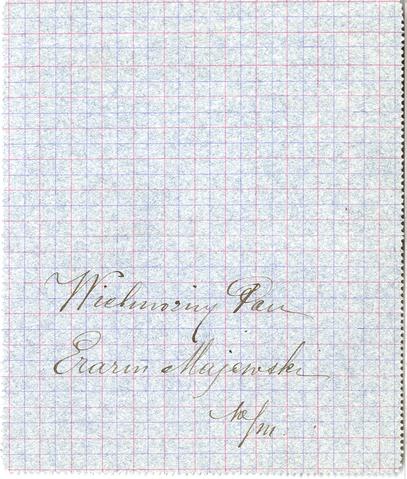 Wielmożny Pan
Erazm Majewski
w/m.